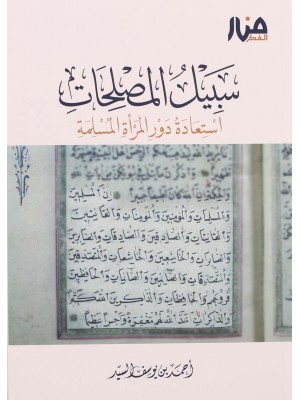 منار
الفكر
سَبِيلُ المُصْلِحَاتِ
اسْتِعَادَةُ دَوْرِ المَرْأَةِ المُسْلِمَةِ
إن المسلمين
والمسلمات والمومنين والمومنات والقانتين
والقانتات والصادقين والصادقات والصابرين
والصابرات والخاشعين والخاشعات والمتصدقين
والمتصدقات والصائمين والصائمات والحافظين
فروجهم والحافظات والذاكرين الله كثيرا
والذاكرات اعد الله لهم مغفرة واجرا عظيما
أحمد بن يوسف السيد